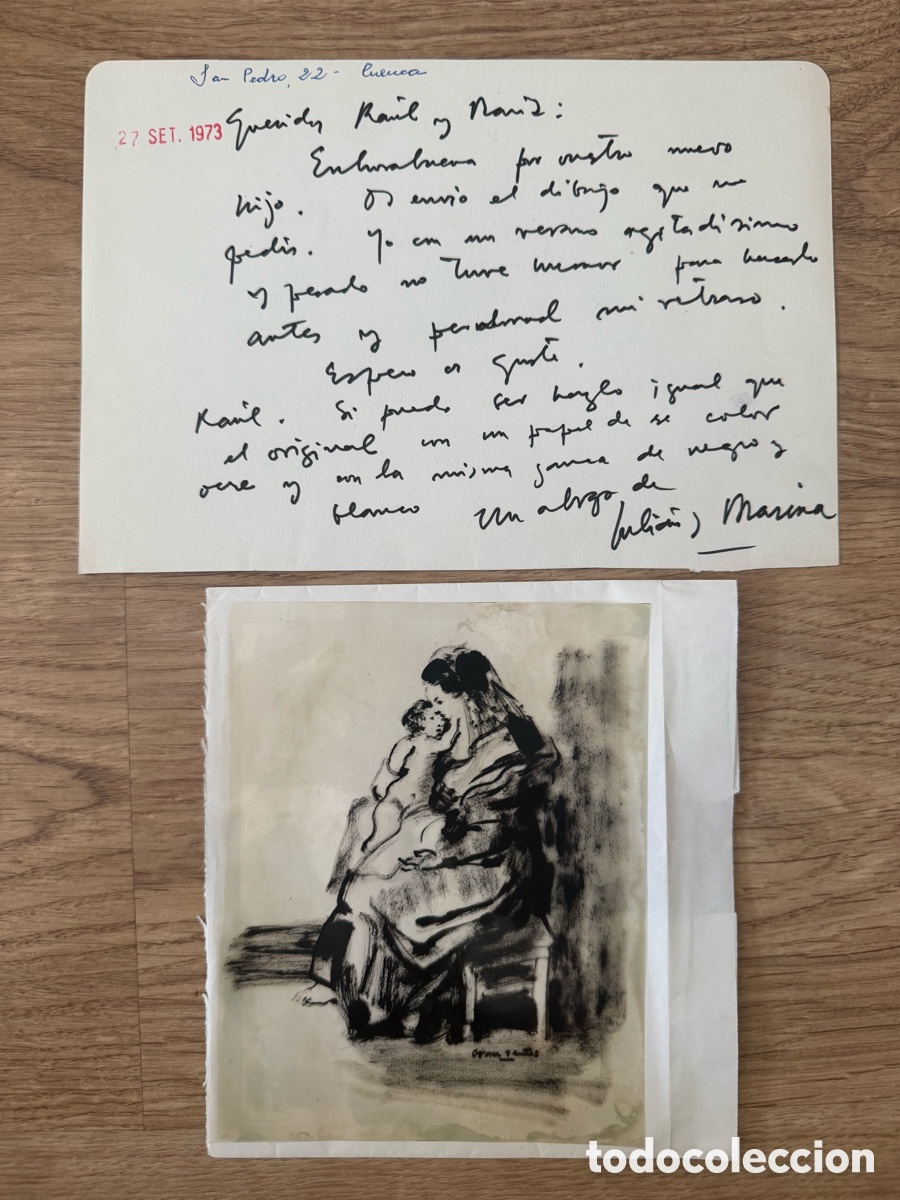 San Pedro, 22 - Cuenca
27 SET. 1973
Queridos Raúl y María:
Enhorabuena por vuestro nuevo
hijo. Os envío el dibujo que me
pedís. Yo con un verano agitadísimo
y pesado no tuve humor para hacerlo
antes y perdonad mi retraso.
Espero os guste.
Raúl. Si puedo ser hazlo igual que
el original con un papel de ese color
ocre y con la misma gama de negro y
blanco Un abrazo de
Julián y Marina
todocoleccion